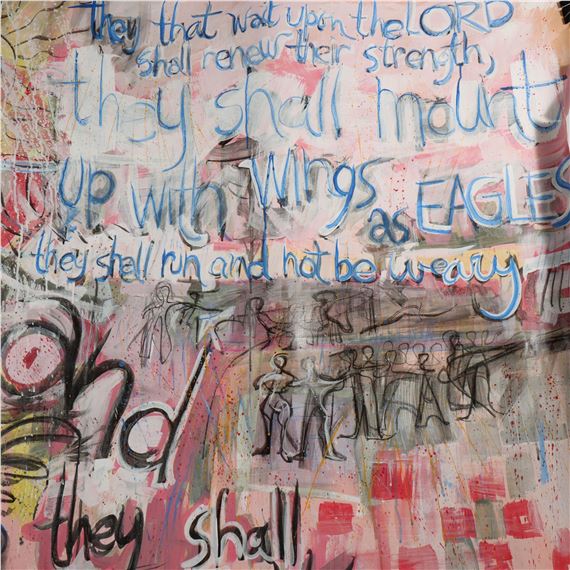 they that wait upon the LORD
shall renew their strength,
they shall mount
up with wings
as EAGLES
they shall run and not be weary
and
they shall